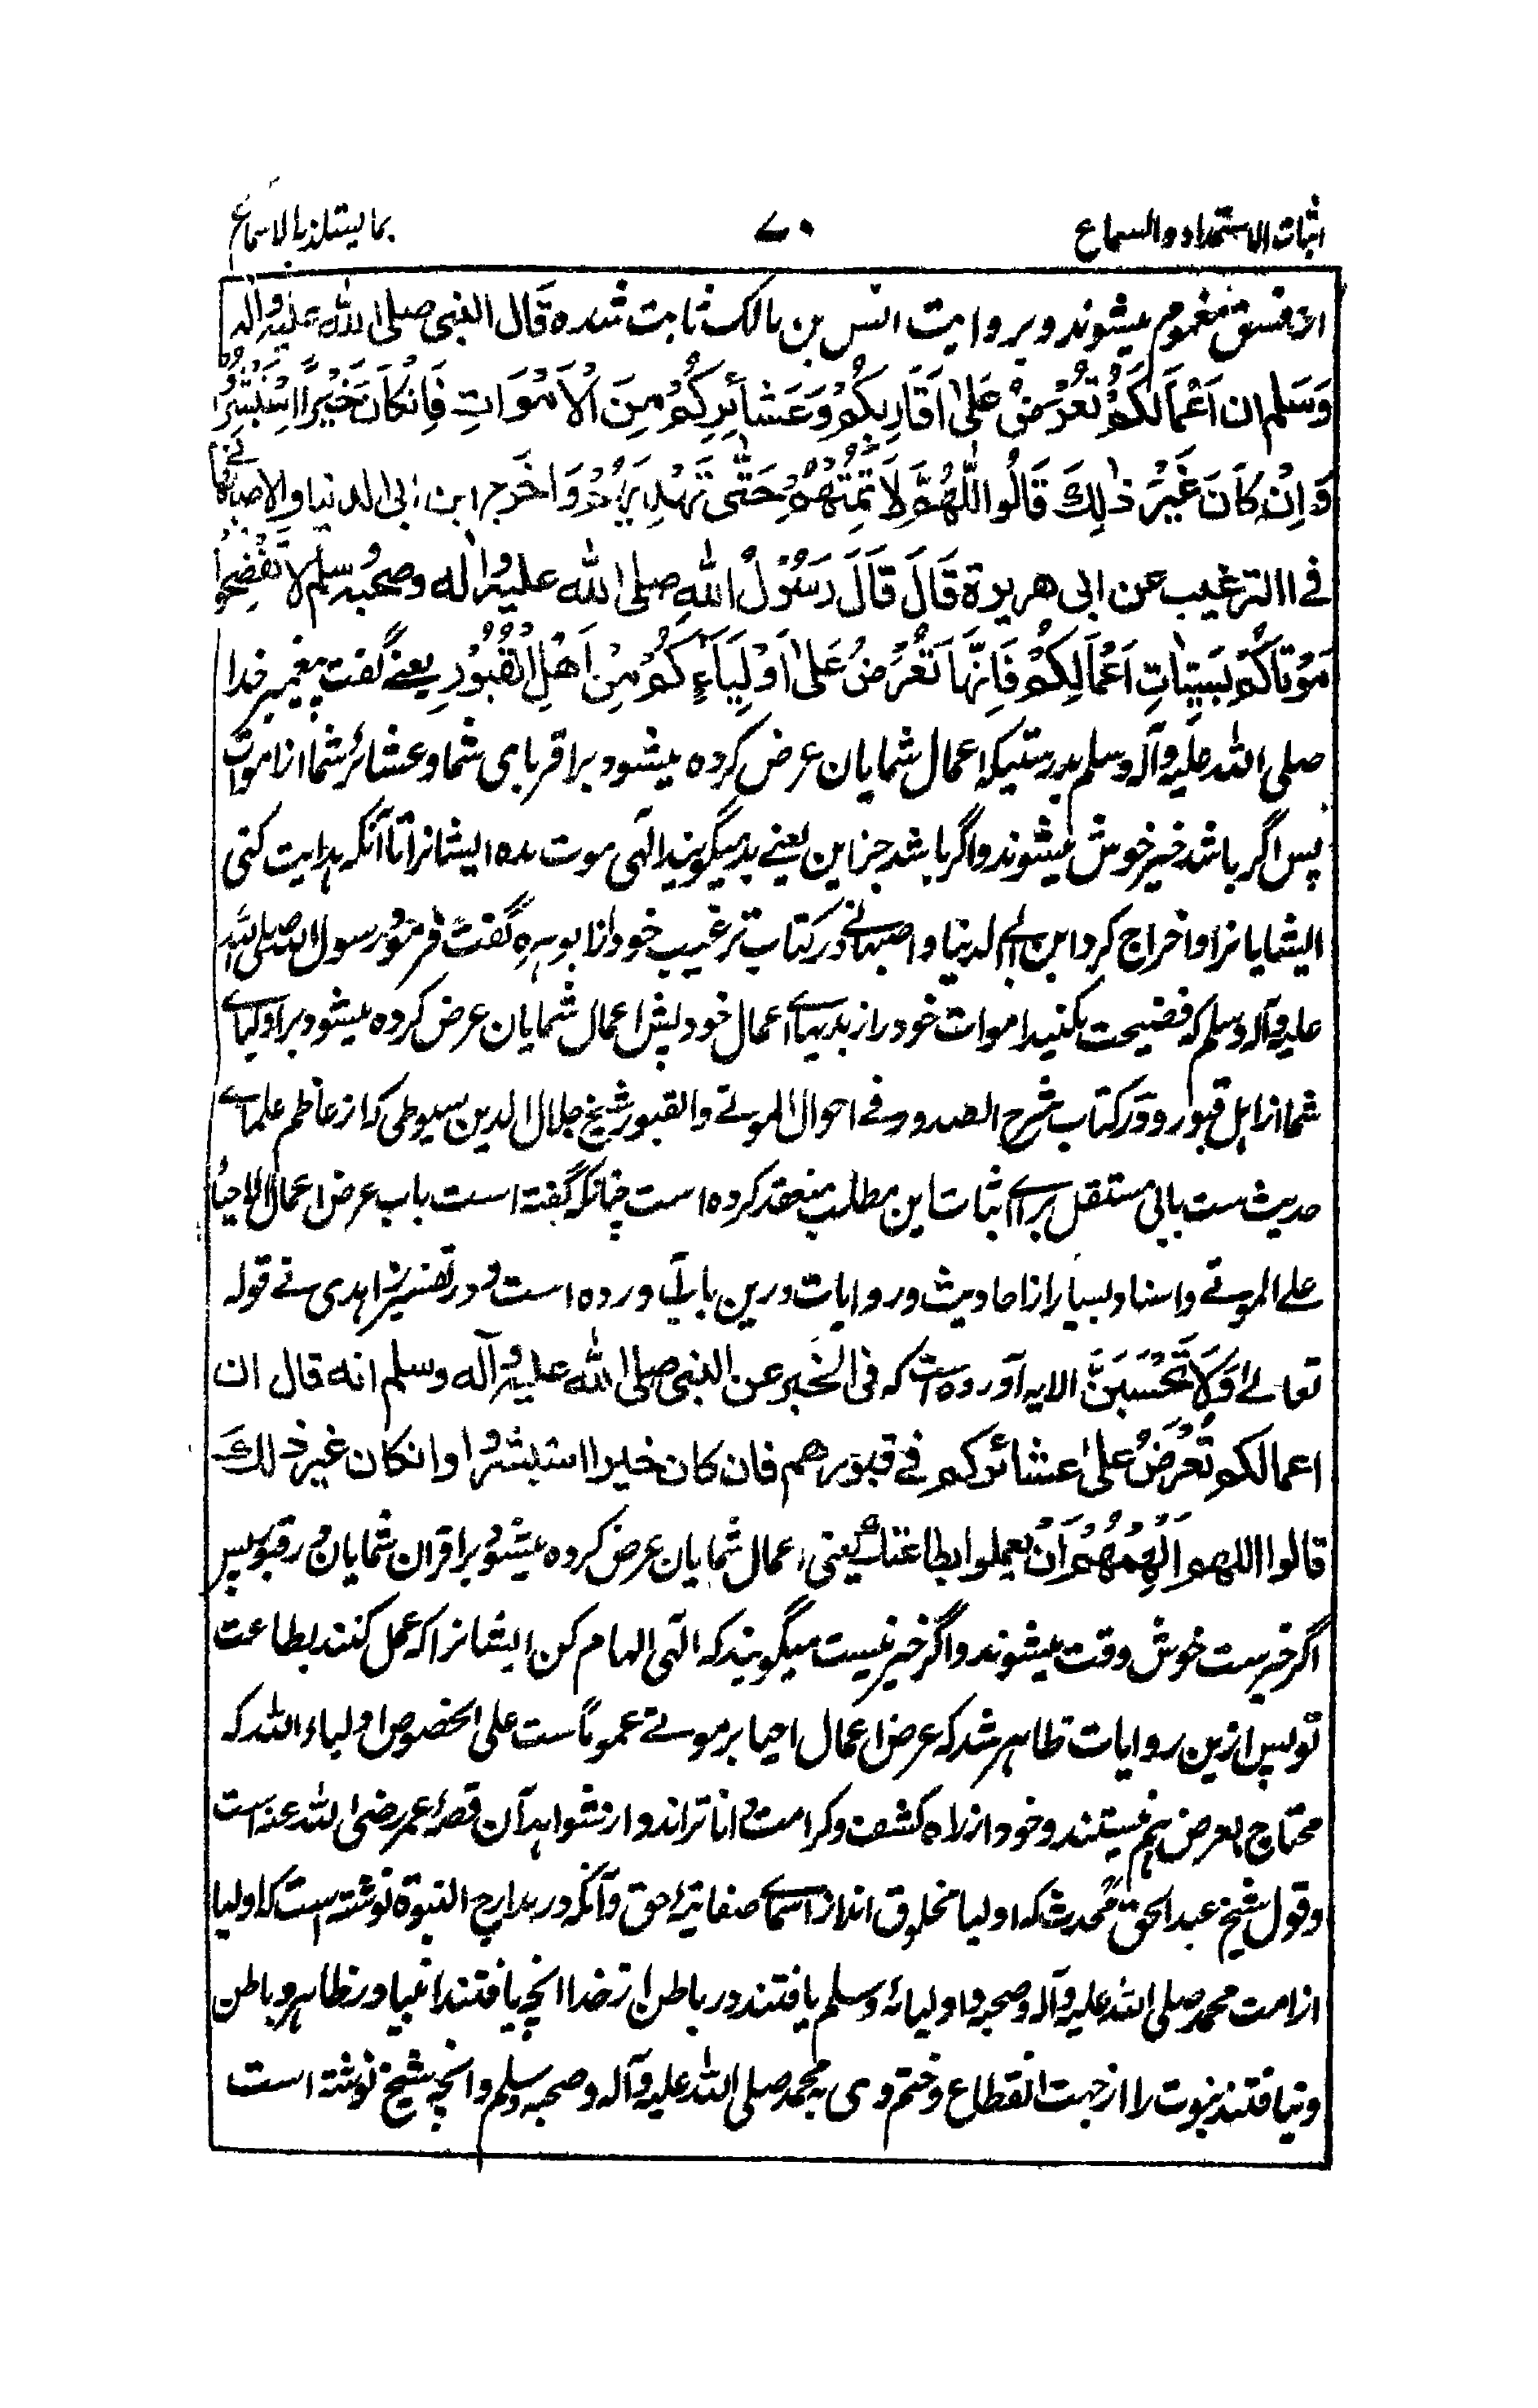 اثبات الاستمداد والسماع
۷۰
بما یستلذ بالاسماع
از فسق مغموم میشوند و بروایت انس بن مالک ثابت شده قَال النبی صلی الله علیه واله
وَسَلم ان اَعْمَالَكُمْ تُعْرَضُ عَلیٰ اَقَارِبِكُمْ وَعَشَائِرِكُمْ مِنَ الْاَمْوَاتِ فَاِنْكَانَ خَيْرًا اِسْتَبْشَرُوْا
وَاِنْ كَانَ غَيْرُ ذٰلِكَ قَالُوا اللّٰهُمَّ لَا تُمِتْهُمْ حَتّٰی تَهْدِيَهُمْ وَاخَرج ابن ابی الدنیا والاصبهانے
فے الترغیب عن ابی هریرة قَالَ قَالَ رَسُوْلُ اللهِ صلی الله علیه واٰله وصحبه سلم لَا تَفْضَحُوْا
مَوْتَاكُمْ بِسَيِّئَاتِ اَعْمَالِكُمْ فَاِنَّهَا تُعْرَضُ عَلیٰ اَوْلِيَاءِكُمْ مِنْ اَهْلِ الْقُبُوْرِ یعنے گفت پیغمبر خدا
صلی الله علیه وآله وسلم بدرستیکه اعمال شمایان عرض کرده میشود بر اقربای شما وعشائر شما از اموات
پس اگر باشد خیر خوش میشوند و اگر باشد جز این یعنے بد میگویند الٰهی موت مده ایشانرا تا آنکه هدایت کنی
ایشایانرا و اخراج کرد ابن ابی الدنیا و اصبهانے در کتاب ترغیب خود از ابو هریره گفت فرمود رسول الله صلی الله
علیه وآله وسلم که فضیحت مکنید اموات خود را از بدیهاے اعمال خود پس اعمال شمایان عرض کرده میشود بر اولیاے
شما از اهل قبور و در کتاب شرح الصدور فے احوال الموتے والقبور شیخ جلال الدین سیوطی که از عاظم علماے
حدیث ست بابی مستقل براے اثبات این مطلب منعقد کرده است چنانکه گفته است باب عرض اعمال الاحیاء
علے الموتے و اسناد بسیار از احادیث و روایات درین باب آورده است و در تفسیر زاهدی فے قوله
تعالے وَلَا تَحْسَبَنَّ الایه آورده است که فی الخبر عن النبی صلی الله علیه وآله وسلم انه قال ان
اعمالكم تُعْرَضُ علیٰ عشائركم فے قبورهم فان كان خيرا استبشروا وانكان غير ذلكَ
قالوا اللهم اَلْهِمْهُمْ اَنْ يعملوا بطاعتك یعنی اعمال شمایان عرض کرده میشود بر اقران شمایان در قبور پس
اگر خیرست خوش وقت میشوند و اگر خیر نیست میگویند که الٰهی الهام کن ایشانرا که عمل کنند بطاعت
تو پس ازین روایات ظاهر شد که عرض اعمال احیا بر موتے عموماً ست علی الخصوص اولیاء الله که
محتاج بعرض هم نیستند و خود از راه کشف و کرامت داناتر اند و از شواهد آن قصهٔ عمر رضی الله عنه است
و قول شیخ عبد الحق محدث که اولیا مخلوق اند از اسماے صفاتیهٔ حق و آنکه در مدارج النبوة نوشته است که اولیا
از امت محمد صلی الله علیه وآله وصحبه واولیائه وسلم یافتند در باطن از خدا انچه یافتند انبیا در ظاهر و باطن
و نیافتند نبوت را از جهت انقطاع و ختم وی به محمد صلی الله علیه وآله وصحبه وسلم و انچه شیخ نوشته است